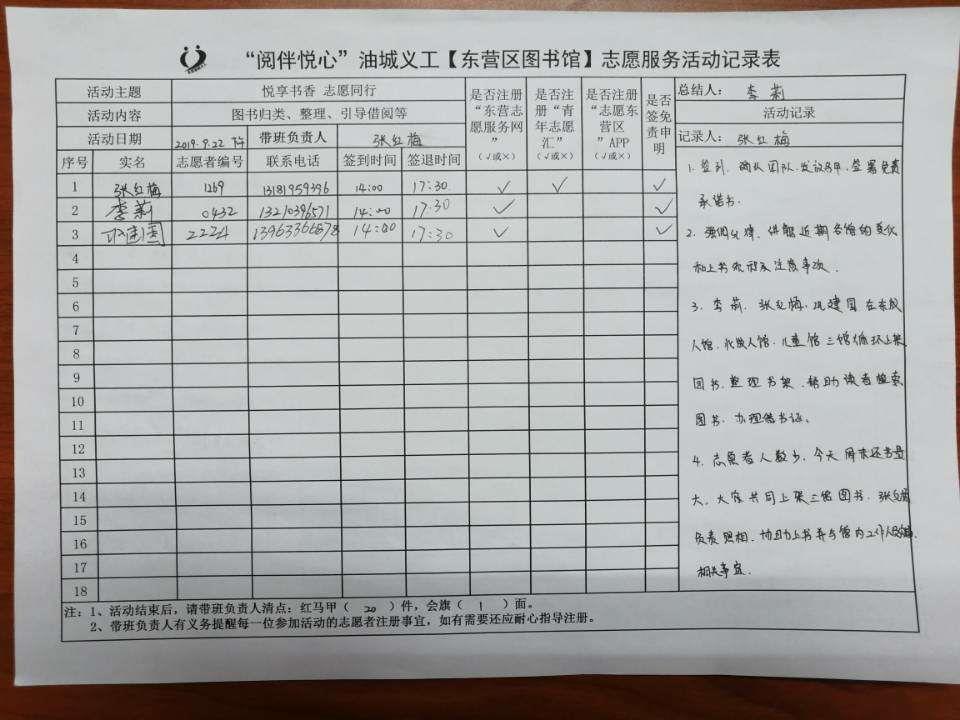 “阅伴悦心”油城义工【东营区图书馆】志愿服务活动记录表
活动主题 悦享书香 志愿同行
活动内容 图书归类、整理、引导借阅等
活动日期 2019.9.22 下午 带班负责人 张红梅
序号 实名 志愿者编号 联系电话 签到时间 签退时间
是否注册“东营志愿服务网”（√或×）
是否注册“青年志愿汇”（√或×）
是否注册“志愿东营区”APP（√或×）
是否签免责申明
1 张红梅 1269 13181959396 14:00 17:30 √ √ √
2 李莉 0432 13210396571 14:00 17:30 √ √
3 巩建国 2224 13963366878 14:00 17:30 √ √
4
5
6
7
8
9
10
11
12
13
14
15
16
17
18
总结人： 李莉
活动记录
记录人： 张红梅
1. 签到、确认团队、发放马甲、签署免责
承诺书.
2. 强调纪律、讲解近期各馆的变化
和上书流程及注意事项.
3. 李莉、张红梅、巩建国在东成
人馆、北成人馆、儿童馆三馆循环上架
图书、整理书架、帮助读者检索
图书、办理借书证。
4. 志愿者人数少，今天周末还书量
大，大家共同上架三馆图书，张红梅
负责照相、协助上书并与馆内工作人员
相关事宜.
注：1、活动结束后，请带班负责人清点：红马甲（ 20 ）件，会旗（ 1 ）面。
2、带班负责人有义务提醒每一位参加活动的志愿者注册事宜，如有需要还应耐心指导注册。